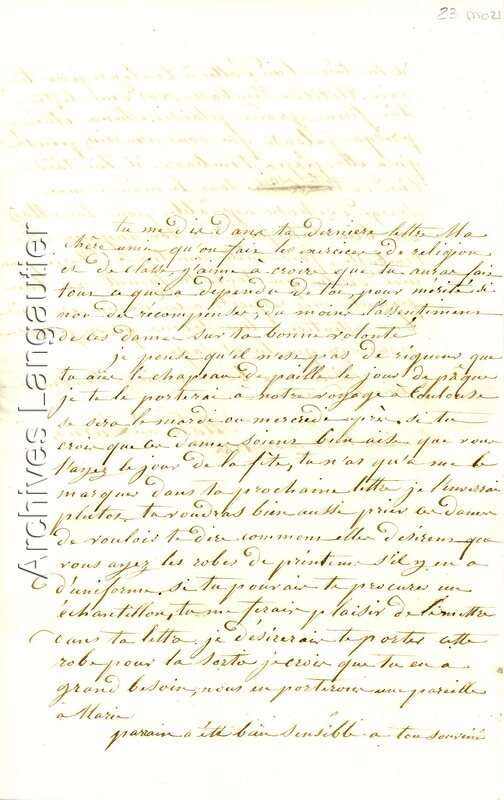 23 mars
tu me dis dans ta derniere lettre Ma
chère amie qu'on fait les exercices, de religion
et de classe, j'aime à croire que tu auras fait
tout ce qui a dépendu de toi, pour mérité si
non des recompenses, du moins l'assentiment
de ces dames sur ta bonne volonté
je pense qu'il n'est pas de rigueur que
tu aie le chapeau de paille le jour de pâque
je te le porterai a notre voyage a toulouse
se sera le mardi ou mercredi après. si tu
crois que ces dames soient bien aise que vous
l'ayez le jour de la fête, tu n'as qu'à me le
marquer dans ta prochaine lettre je l'enverrai
plutot. tu voudras bien aussi prier ces dames
de vouloir te dire comment elles désirent que
vous ayez les robes de printems s'il y en a
d'uniforme. si tu pouvais te procurer un
échantillon, tu me ferais plaisir de le mettre
dans ta lettre, je désirerais te porter cette
robe pour la sortie je crois que tu en a
grand besoin, nous en porterons une pareille
a Marie
parrain a été bien sensible a ton souvenir
Archives Langautier